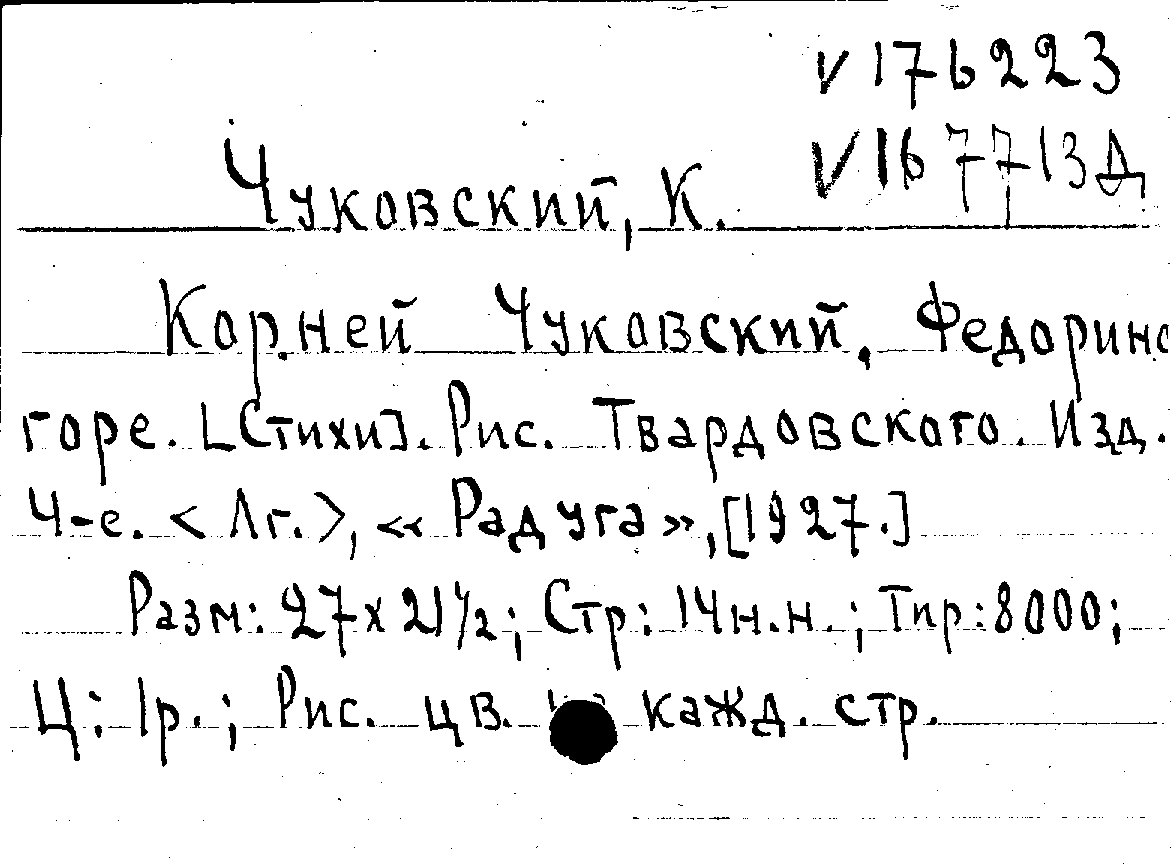 V 176223
V 167713Д
Чуковский, К.
Корней Чуковский. Федорино
горе. [Стихи]. Рис. Твардовского. Изд.
4-е. <Лг.>, «Радуга», [1927.]
Разм: 27х21½; Стр: 14н.н.; Тир: 8000;
Ц: 1р.; Рис. цв. кажд. стр.